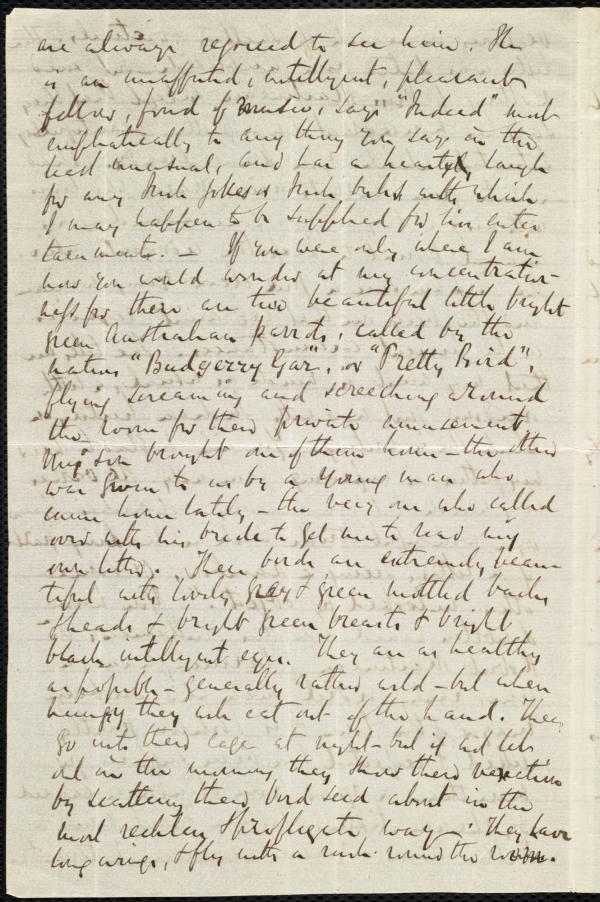 are always rejoiced to see him. He
is an unaffected, intelligent, pleasant
fellow, fond of music, says "Indeed" most
emphatically to any thing you say in the
least unusual, and has a hearty laugh
for any Irish jokes or Irish bulls with which
I may happen to be supplied for his enter
tainment. — If you were only where I am
now you would wonder at my concentrative-
ness for there are two beautiful little bright
green Australian parrots, called by the
natives "Budgerry Gar", or "Pretty Bird",
flying screaming and screeching around
the room for their private amusement
My son brought one of them home – the other
was given to us by a young man who
came home lately – the very one who called
over with his bride to get me to read my
own letter. These birds are extremely beau
tiful with lovely gray & green mottled backs
& heads & bright green breasts & bright
black intelligent eyes. They are as healthy
as possible – generally rather wild – but when
hungry they will eat out of the hand. They
go into their cage at night – but if not let
out in the morning they show their vexation
by scattering their bird seed about in the
most reckless & profligate way. They have
long wings, & fly with a rush round the room.